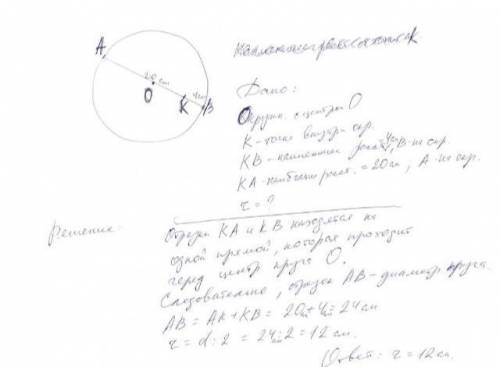 A
20 см
O
K
4см
B
Дано:
Окружн. с центром O
K - точка внутри окр.
KB - наименьшее расст. 4см, B - на окр.
KA - наибольш. расст. = 20см, A - на окр.
r = ?
Решение:
Отрезки KA и KB находятся на
одной прямой, которая проходит
через центр круга O.
Следовательно, отрезок AB - диаметр круга
AB = AK + KB = 20см + 4см = 24см
r = d : 2 = 24см : 2 = 12 см.
Ответ: r = 12см.